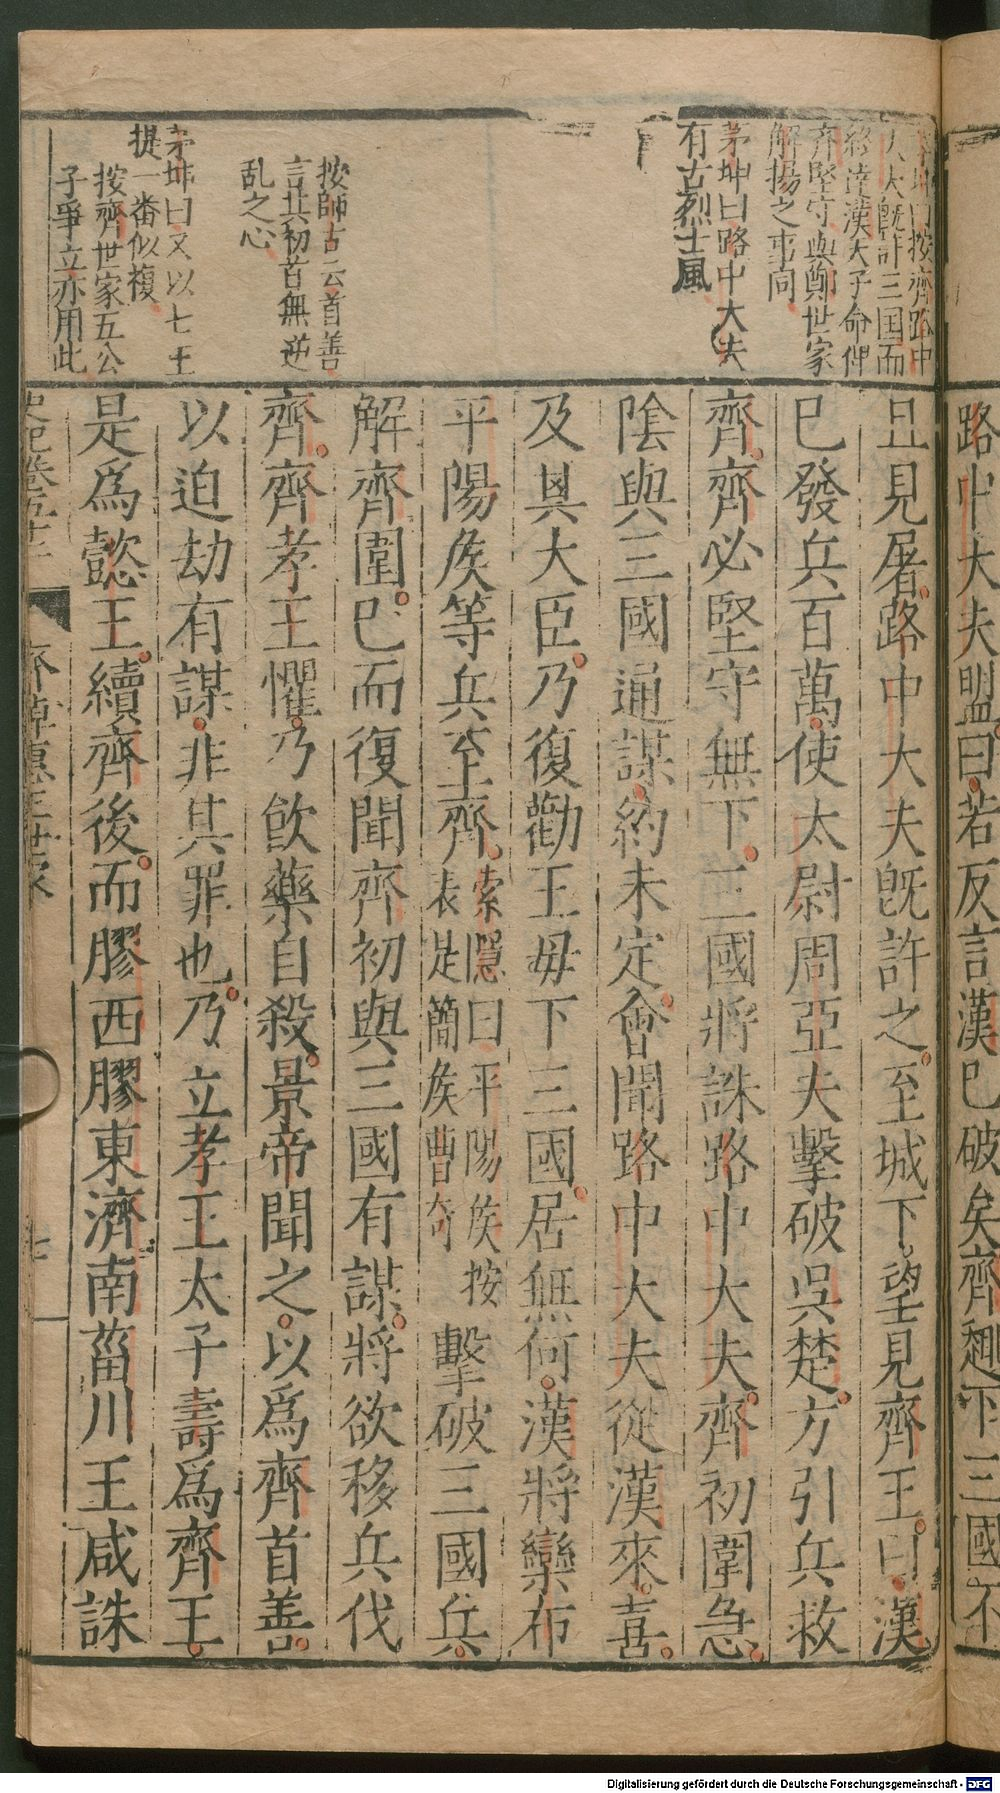 路中大夫盟曰若反言漢已破矣齊趣下三國不
且見屠路中大夫旣許之至城下望見齊王曰漢
已發兵百萬使太尉周亞夫擊破吳楚方引兵救
齊齊必堅守無下三國將誅路中大夫齊初圍急
陰與三國通謀約未定會聞路中大夫從漢來喜
及其大臣乃復勸王毋下三國居無何漢將欒布
平陽矦等兵至齊索隱曰平陽矦按
表是簡矦曹奇擊破三國兵
解齊圍已而復聞齊初與三國有謀將欲移兵伐
齊齊孝王懼乃飮藥自殺景帝聞之以爲齊首善
以迫劫有謀非其罪也乃立孝王太子壽爲齊王
是爲懿王續齊後而膠西膠東濟南菑川王咸誅
按齊路中
大夫旣許三国而
終達漢天子命俾
齊堅守與鄭世家
解揚之事同
茅坤曰路中大夫
有古烈士風
按師古云首善
言其初首無逆
乱之心
茅坤曰又以七王
提一番似複
按齊世家五公
子爭立亦用此
史記卷五十二
齊悼惠王世家
七
Digitalisierung gefördert durch die Deutsche Forschungsgemeinschaft - DFG